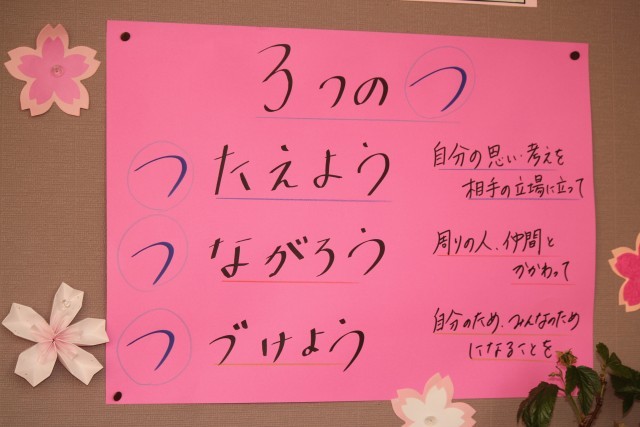 3つのつ
つたえよう
自分の思い・考えを
相手の立場に立って
つながろう
周りの人、仲間と
かかわって
つづけよう
自分のため、みんなのため
になることを